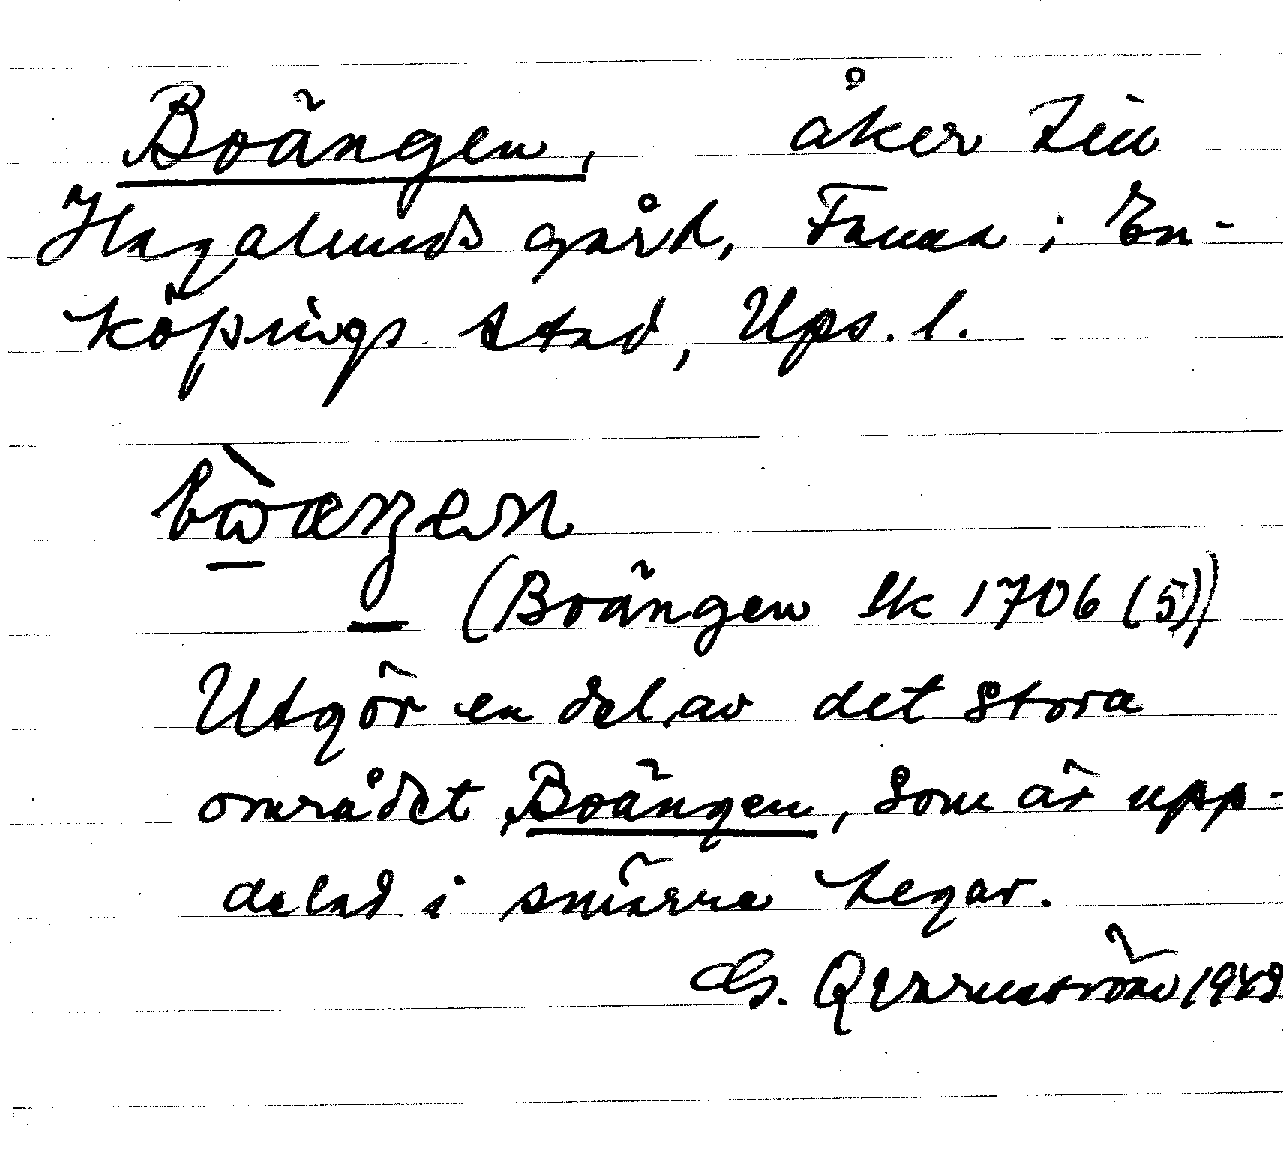 Boängen, åker till
Hagalunds gård, Fanna i En-
köpings stad, Ups. l.
bὼæŋen
(Boängen lk 1706 (5))
Utgör en del av det stora
området Boängen, som är upp-
delad i smärre tegar.
G. Qvarnström 1949